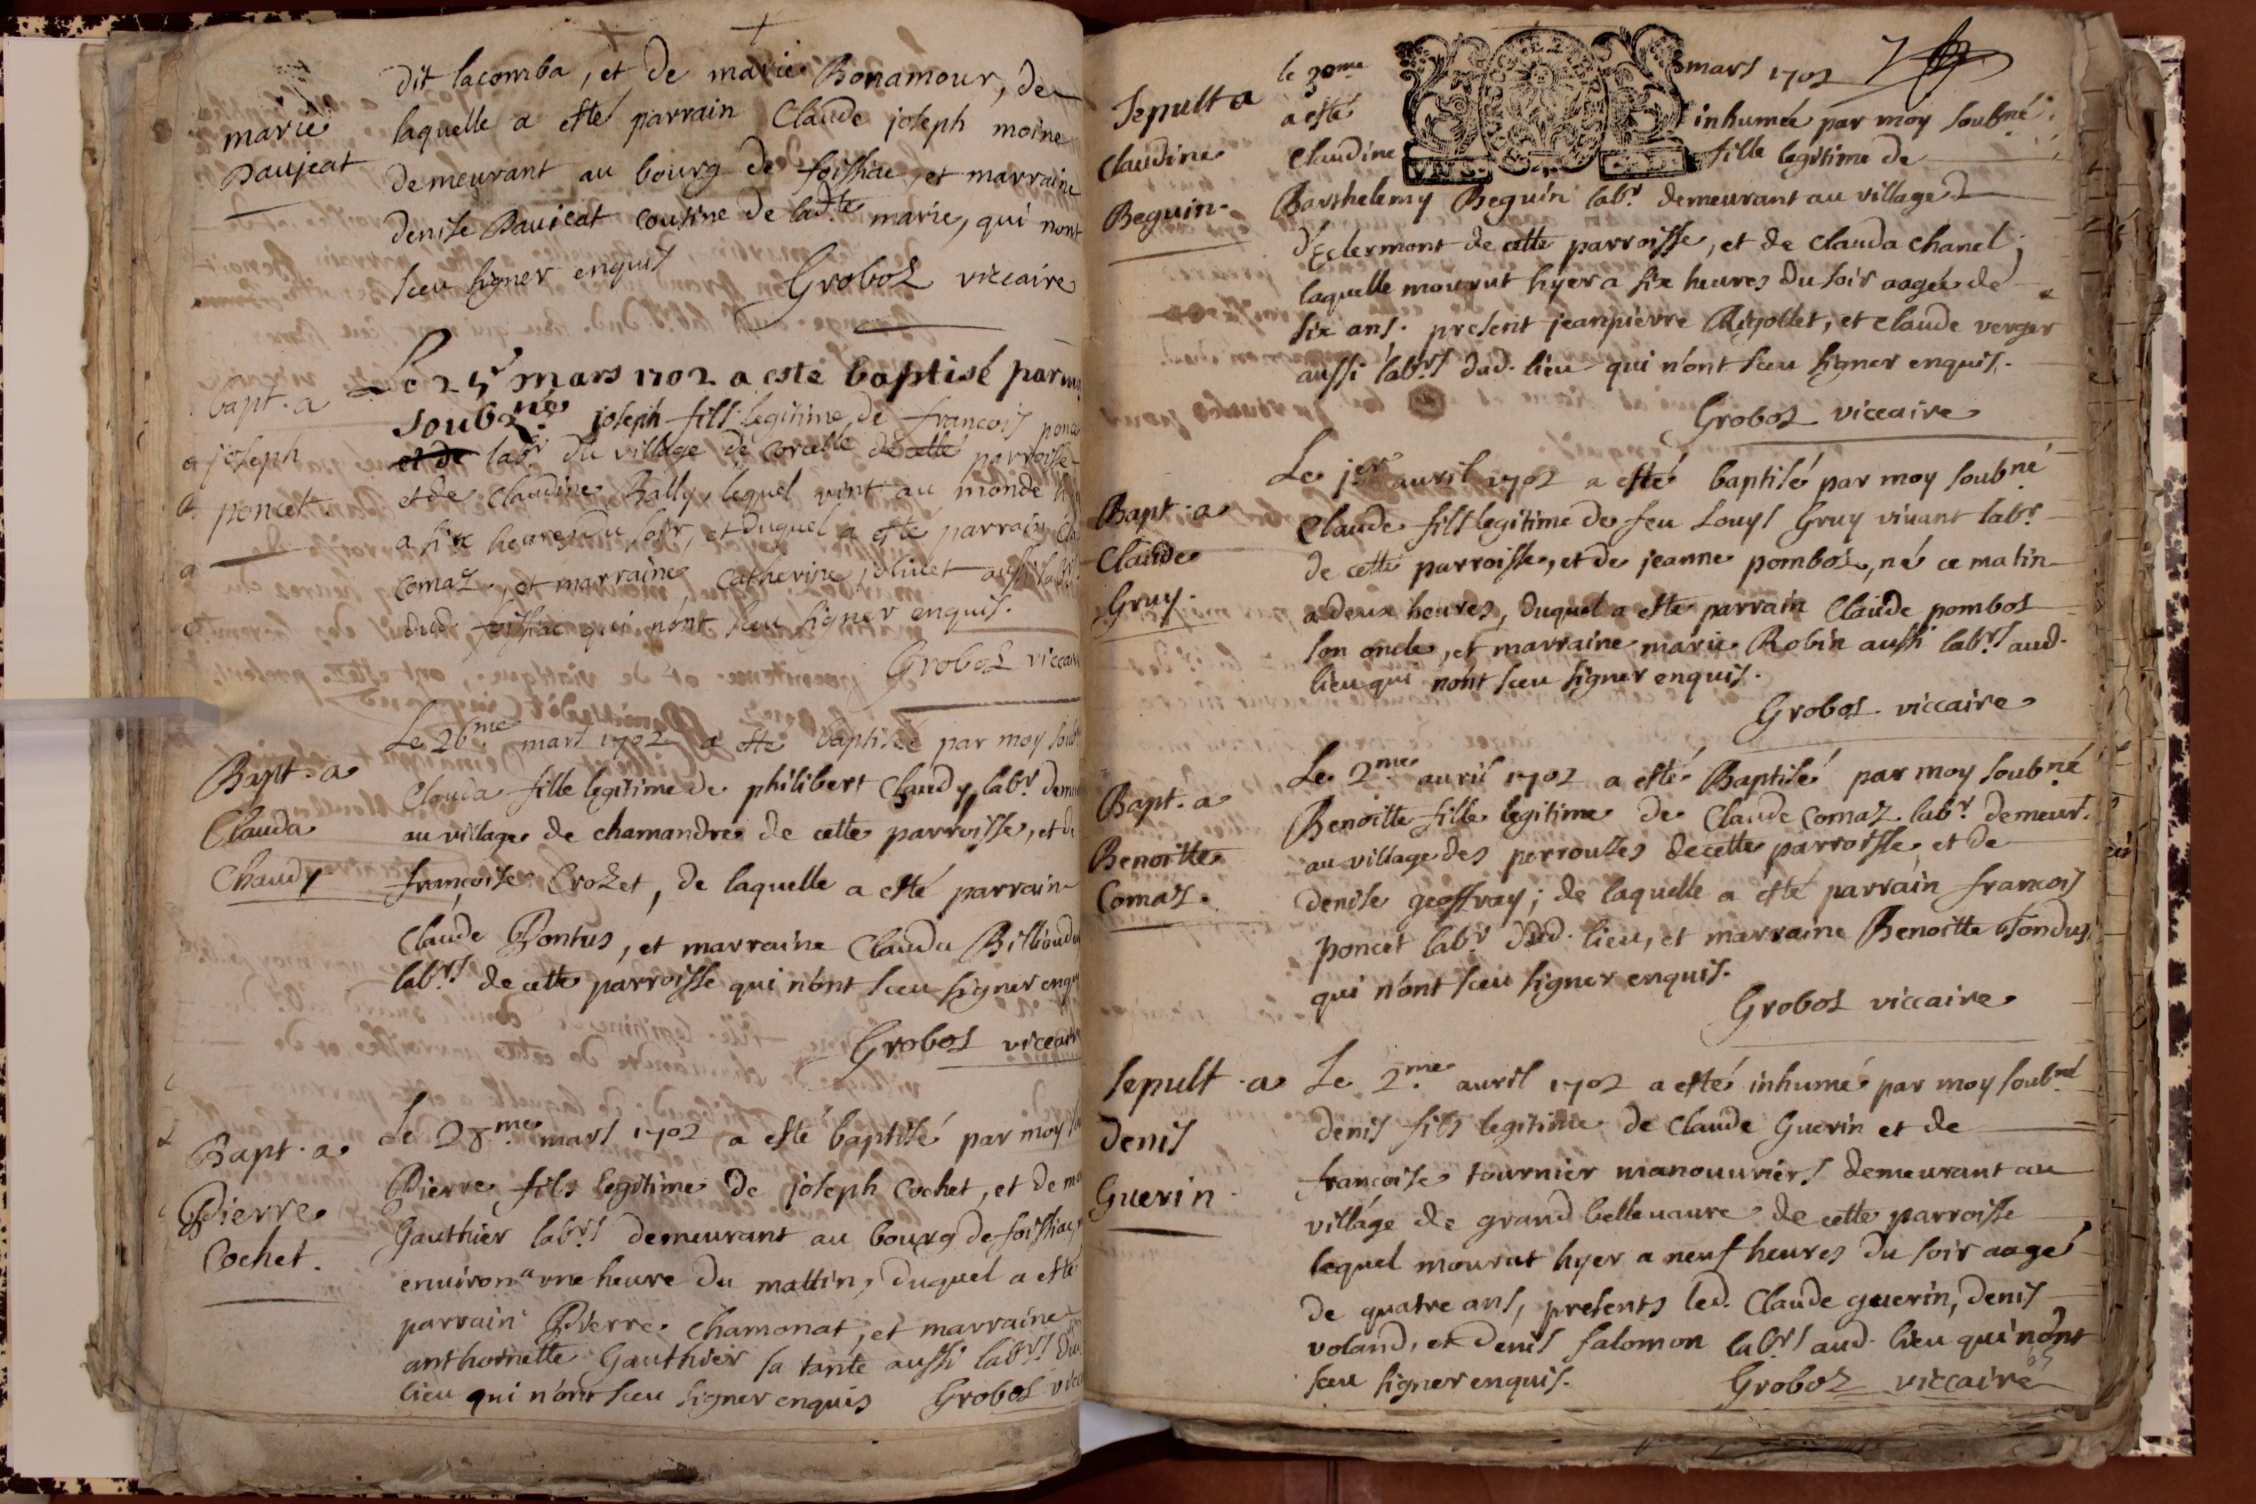 marie
Paujeat
dit lacomba, et de marie Bonamour, de
laquelle a esté parrain Claude joseph moine
demeurant au bourg de foissiac, et marraine
denise Paujeat cousine de ladte marie, qui nont
sceu signer enquis
Groboz viccaire
bapt. a
joseph
poncet
Le 25e mars 1702 a esté baptisé par moy
soubzné joseph fils legitime de francois poncet
et de labr du village de corcelle de cette parroisse
et de Claudine Bally, lequel vint au monde
a six heures du soir, et duquel a esté parrain
Comaz, et marraine Catherine jolivet aussi labrs
dud. foissiac qui n'ont sceu signer enquis.
Groboz viccaire
Bapt. a
Clauda
Chaudy
Le 26me mars 1702 a esté baptisée par moy soubné
Clauda fille legitime de philibert Chaudy, labr demeu
au village de chamandre de cette parroisse, et de
françoise Crozet, de laquelle a esté parrain
Claude Pontus, et marraine Clauda Billioud
labrs de cette parroisse qui n'ont sceu signer enquis
Groboz viccaire
Bapt. a
Pierre
Cochet.
Le 28me mars 1702 a esté baptisé par moy
Pierre fils legitime de joseph Cochet, et de
Gauthier labrs demeurant au bourg de foissiac,
environ a une heure du mattin, duquel a esté
parrain Pierre Chamonat, et marraine
anthoinette Gauthier sa tante aussi labrs dud
lieu qui n'ont sceu signer enquis Groboz vicc
7
Sepult a
Claudine
Beguin.
le 30me mars 1702
a esté inhumée par moy soubné
Claudine fille legitime de
Barthelemy Beguin labr demeurant au village
d'Eclermont de cette parroisse, et de Clauda Chanel,
laquelle mourut hyer a six heures du soir aagée de
six ans. present jeanpierre Rigollet, et Claude verger
aussi labrs dud. lieu qui n'ont sceu signer enquis.
Groboz viccaire
Bapt. a
Claude
Gruy.
Le jer avril 1702 a esté baptisé par moy soubné
Claude fils legitime de feu Louys Gruy vivant labr
de cette parroisse, et de jeanne pomboz, né ce matin
a deux heures, duquel a esté parrain Claude pomboz
son oncle, et marraine marie Robin aussi labrs aud.
lieu qui nont sceu signer enquis.
Groboz viccaire
Bapt. a
Benoitte
Comaz.
Le 2me avril 1702 a esté Baptisé par moy soubné
Benoitte fille legitime de Claude Comaz labr demeurt.
au village des perrouzes de cette parroisse et de
denise geoffray; de laquelle a esté parrain francois
poncet labr dud. lieu, et marraine Benoitte Fondus,
qui n'ont sceu signer enquis.
Groboz viccaire
Sepult a
denis
Guerin
Le 2me avril 1702 a esté inhumé par moy soubné
denis fils legitime de Claude Guerin et de
francoise tournier manouvriers demeurant au
village de grand bellevavre de cette parroisse
lequel mourut hyer a neuf heures du soir aagé
de quatre ans, presents led. Claude guerin, denis
voland, et denis salomon labrs aud. lieu qui n'ont
sceu signer enquis. Groboz viccaire